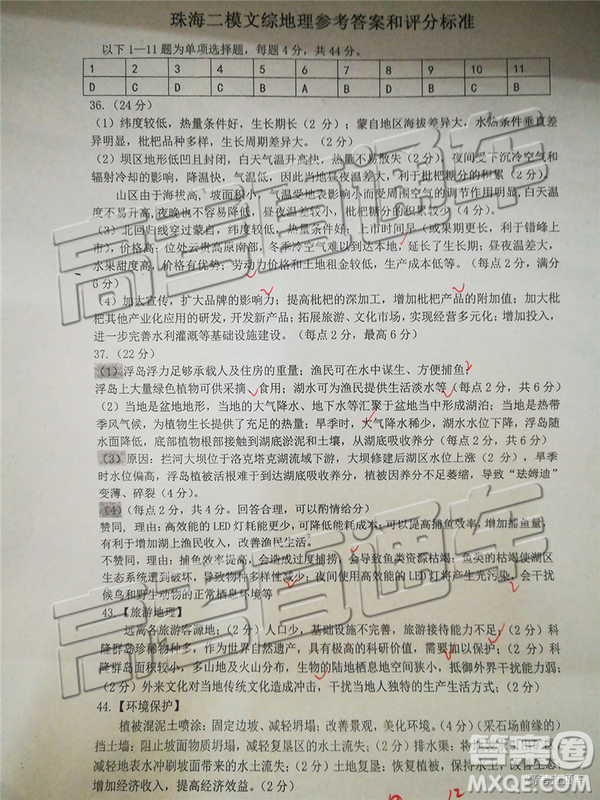 珠海二模文综地理参考答案和评分标准
以下1—11题为单项选择题，每题4分，共44分。
1 2 3 4 5 6 7 8 9 10 11
D C D C B A B D B C C
36.（24分）
（1）纬度较低，热量条件好，生长期长（2分）；蒙自地区海拔差异大，水热条件垂直差
异明显，枇杷品种多样，生长周期差异大。（2分）
（2）坝区地形低凹且封闭，白天气温升高快，热量不易散失（2分）；夜间受下沉冷空气和
辐射冷却的影响，降温快，气温低，因此当地昼夜温差大，利于枇杷糖分的积累（2分）
山区由于海拔高，坡面积小，气温受地表影响小而受周围空气的调节作用明显，白天温度
不易升高，夜晚也不容易降温，昼夜温差较小，枇杷糖分的积累较少（2分）
（3）北回归线穿过蒙自，纬度较低，热量好；上市时间早（或果期更长，利于错峰上
市），价格高；位处云贵高原南部，冬季冷空气难以到达本地，延长了生长期；昼夜温差大，
水果甜度高，价格有优势；劳动力价格和土地租金较低，生产成本低等。（每点2分，满分
6分）
（4）加大宣传，扩大品牌的影响力；提高枇杷的深加工，增加枇杷产品的附加值；加大枇
杷其他产业化应用的研究，开发新产品；拓展旅游文化，实现经营多元化；增加资金投入，
进一步完善水利灌溉等基础设施建设。（每点2分，满分6分）
37.（22分）
（1）浮岛浮力足够承载人及住房的重量；渔民可在水中谋生、方便捕鱼；
浮岛上大量绿色植物可供采摘、食用；湖水可为渔民提供生活淡水等（每点2分，共6分）
（2）当地是盆地地形，当地的大气降水、地下水等汇聚于盆地当中形成湖泊；当地是热带
季风气候，为植物生长提供了充足的热量；旱季时，大气降水稀少，湖水水位下降，浮岛随
水面降低，底部植物根部接触到湖底淤泥和土壤，从湖底吸收养分（每点2分，共6分）
（3）原因：拦河大坝位于洛克塔克湖流域下游，大坝修建后湖水水位上升（2分），旱季
时水位偏高，浮岛植被活根系难以到达湖底吸收养分，植被因养分不足萎缩，导致“珐姆迪”
变薄、碎裂（4分）。
（4）（每点2分，共4分。回答合理，可以酌情给分）
赞同，理由：高效能的LED灯耗能更少，可降低能耗成本；可提高捕鱼效率，增加捕鱼量，
有利于增加湖上渔民收入，改善渔民生活。
不赞同，理由：捕鱼效率提高，会造成过度捕捞，会导致鱼类资源枯竭；鱼类的枯竭使湖区
生态系统遭到破坏，导致物种多样性减少；夜间使用高效能的LED灯将产生光污染，会干扰
候鸟和野生动物的正常栖息环境等
43.【旅游地理】
远离各旅游客源地；（2分）人口少，基础设施不完善，旅游接待能力不足；（2分）科
隆群岛珍稀物种多样，作为世界自然遗产，具有极高的科研价值，需要加以保护；（2分）科
隆群岛面积较小，多山地及火山分布，生物的陆地栖息地空间狭小，抵御外界干扰能力弱；
（2分）外来文化对当地传统文化造成冲击，并且干扰当地人独特的生产生活方式；（2分）
44.【环境保护】
植被混泥土喷涂：固定边坡、减轻坍塌；改善景观，美化环境。（4分）（采石场前缘的）
挡土墙：阻止边坡物质坍塌，减轻复垦区的水土流失；（2分）排水渠：将坡地汇水和
地表水分流排水，减轻对坡面的水土流失；（2分）土地复垦：恢复植被，改善生态环境，
增加经济收入，提高经济效益。（2分）
2 2
12
高考直通车
答案圈
MXQE.COM